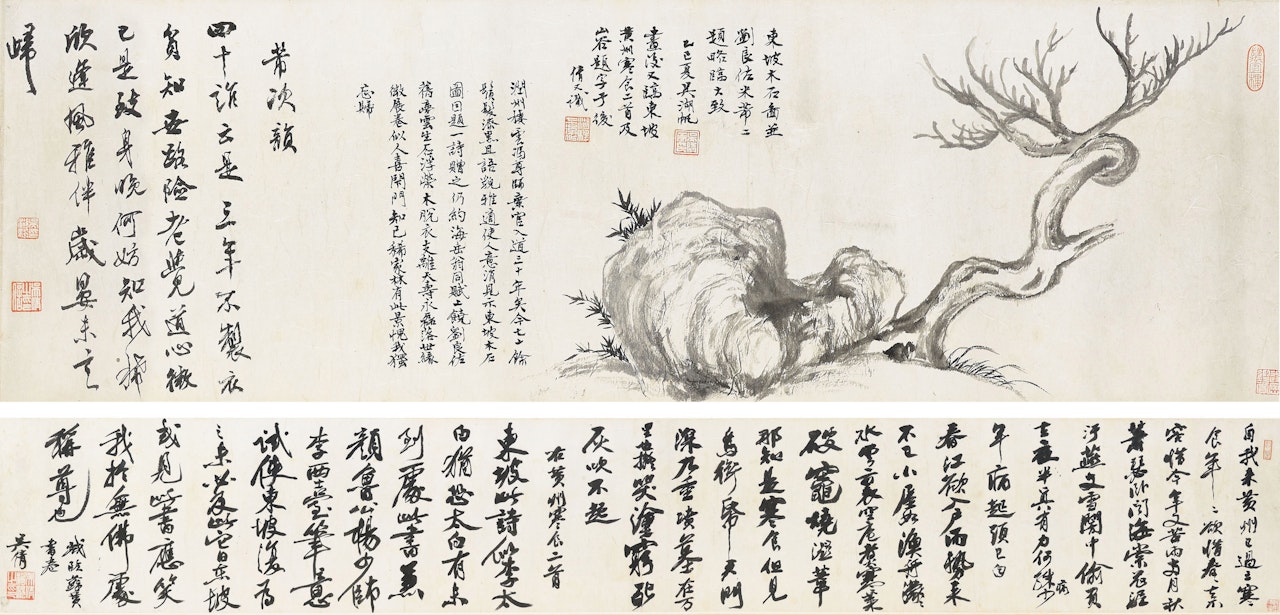 東坡木石圖並
劉良佐米芾二
題略臨大致
乙巳夏吳湖帆
畫後又臨東坡
黃州寒食二首及
山谷題字于後
倩又識
潤州棲雲馮尊師棄官入道三十年矣今七十餘
鬚髮漆黑且語貌雅適使人意消見示東坡木石
圖因題一詩贈之仍約海岳翁同賦上饒劉良佐
舊夢雲生石浮榮木脫衣支離天壽永磊落世緣
微展卷似人喜閉門知己稀家林有此景愧我獨
忘歸
芾次韻
四十誰云是三年不製衣
貧知世路險老覺道心微
已是致身晚何妨知我稀
欣逢風雅伴歲晏未言
歸
自我來黃州已過三寒
食年〻欲惜春〻去不
容惜今年又苦雨兩月秋
蕭瑟臥聞海棠花泥
汙燕支雪闇中偷負
去夜半真有力何殊少病
年病起頭已白
春江欲入戶雨勢來
不已小屋如漁舟濛〻
水雲裏空庖煮寒菜
破竈燒濕葦
那知是寒食但見
烏銜帋君門
深九重墳墓在万
里也擬哭塗窮死
灰吹不起
右黃州寒食二首
東坡此詩似李太
白猶恐太白有未
到處此書兼
顏魯公楊少師
李西臺筆意
試使東坡復為
之未必及此它日東坡
或見此書應笑
我於無佛處
稱尊也
戲臨蘇黃
書卷
吳倩